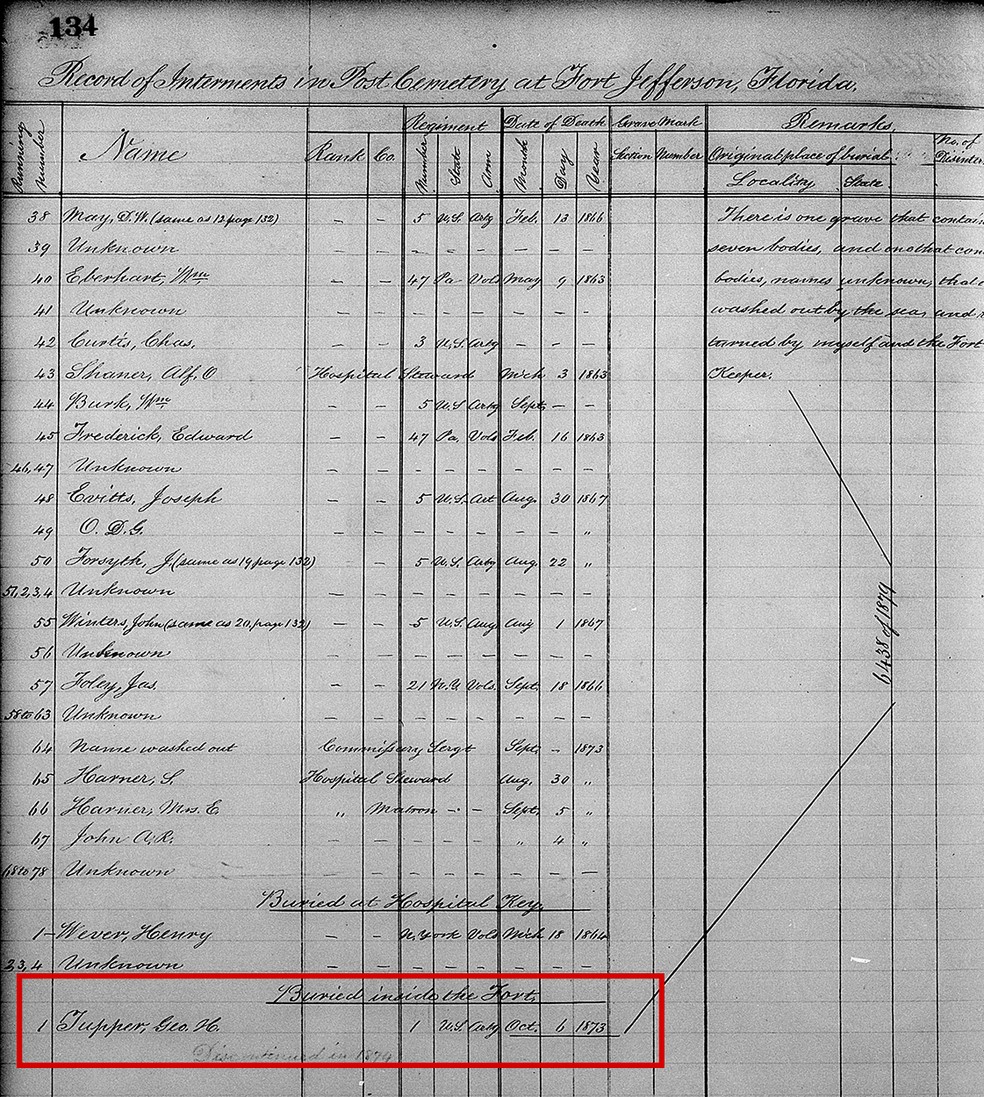 134
Record of Interments in Post Cemetery at Fort Jefferson, Florida.
Running Number Name Rank Co. Regiment Number State Arm Date of Death Month Day Year Grave Mark Section Number Remarks. Original place of burial. Locality State No. of Disinter
38 May, D. W. (same as 12 page 132) – – 5 U.S. Arty Feb. 13 1866 There is one grave that contain
39 Unknown – – – – – – – – seven bodies, and one that con
40 Eberhart, Wm – – 47 Pa Vols May 9 1863 bodies, names unknown, that
41 Unknown – – – – – – – – washed out by the sea, and
42 Curtis, Chas. – – 3 U.S. Arty – – – turned by myself and the Fort
43 Shaner, Alf. O Hospital Steward Mich 3 1863 Keeper.
44 Burk, Wm – – 5 U.S Arty Sept. – –
45 Frederick, Edward – – 47 Pa. Vols Feb. 16 1863
46,47 Unknown – – – – – – – –
48 Evitts, Joseph – – 5 U.S. Art Aug. 30 1867
49 O. D. G. – – – – – – – "
50 Forsyth, J. (same as 19 page 132) – 5 U.S. Arty Aug. 22 "
51,2,3,4 Unknown – – – – – – – –
55 Winters, John (same as 20, page 132) – – 5 U.S. Aug. Aug 1 1867
56 Unknown – – – – – – – –
57 Foley, Jas. – – 21 N.Y. Vols. Sept. 18 1866
58 to 63 Unknown – – – – – – – –
64 Name washed out Commissary Sergt Sept. – 1873
65 Harner, S. Hospital Steward Aug. 30 "
66 Harner, Mrs. E. " Matron – – Sept. 5 "
67 John A. R. – – – – – " 4 "
68 to 78 Unknown – – – – – – – –
6438 of 1879
Buried at Hospital Key.
1 – Wever, Henry – – N. York Vols Mich 18 1864
2,3,4 Unknown – – – – – – – –
Buried inside the Fort.
1 Tupper, Geo. H. 1 U.S Arty Oct. 6 1873
Discontinued in 1879